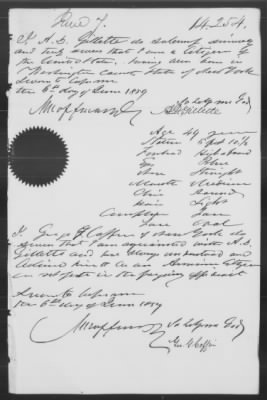 June 7. 14.254.
I A. D. Gillette do solemnly sincerely
and truly swear that I am a Citizen of
the United States. having been born in
Washington County State of New York
Sworn to before me
the 6th day of June 1859
So help me God
A D Gillette
Age 49 years
Stature 5 feet 10 1/2
Forehead High & broad
Eyes Blue
Nose Straight
Mouth Medium
Chin Round
Hair Light
Complexion Fair
Face Oval
I Geo. G. Coffin of New York do
swear that I am acquainted with A. D.
Gillette and have always understood and
believed him to be an American Citizen
in respects to the foregoing affidavit
Sworn to before me
this 6th day of June 1859
So help me God
Geo. G. Coffin